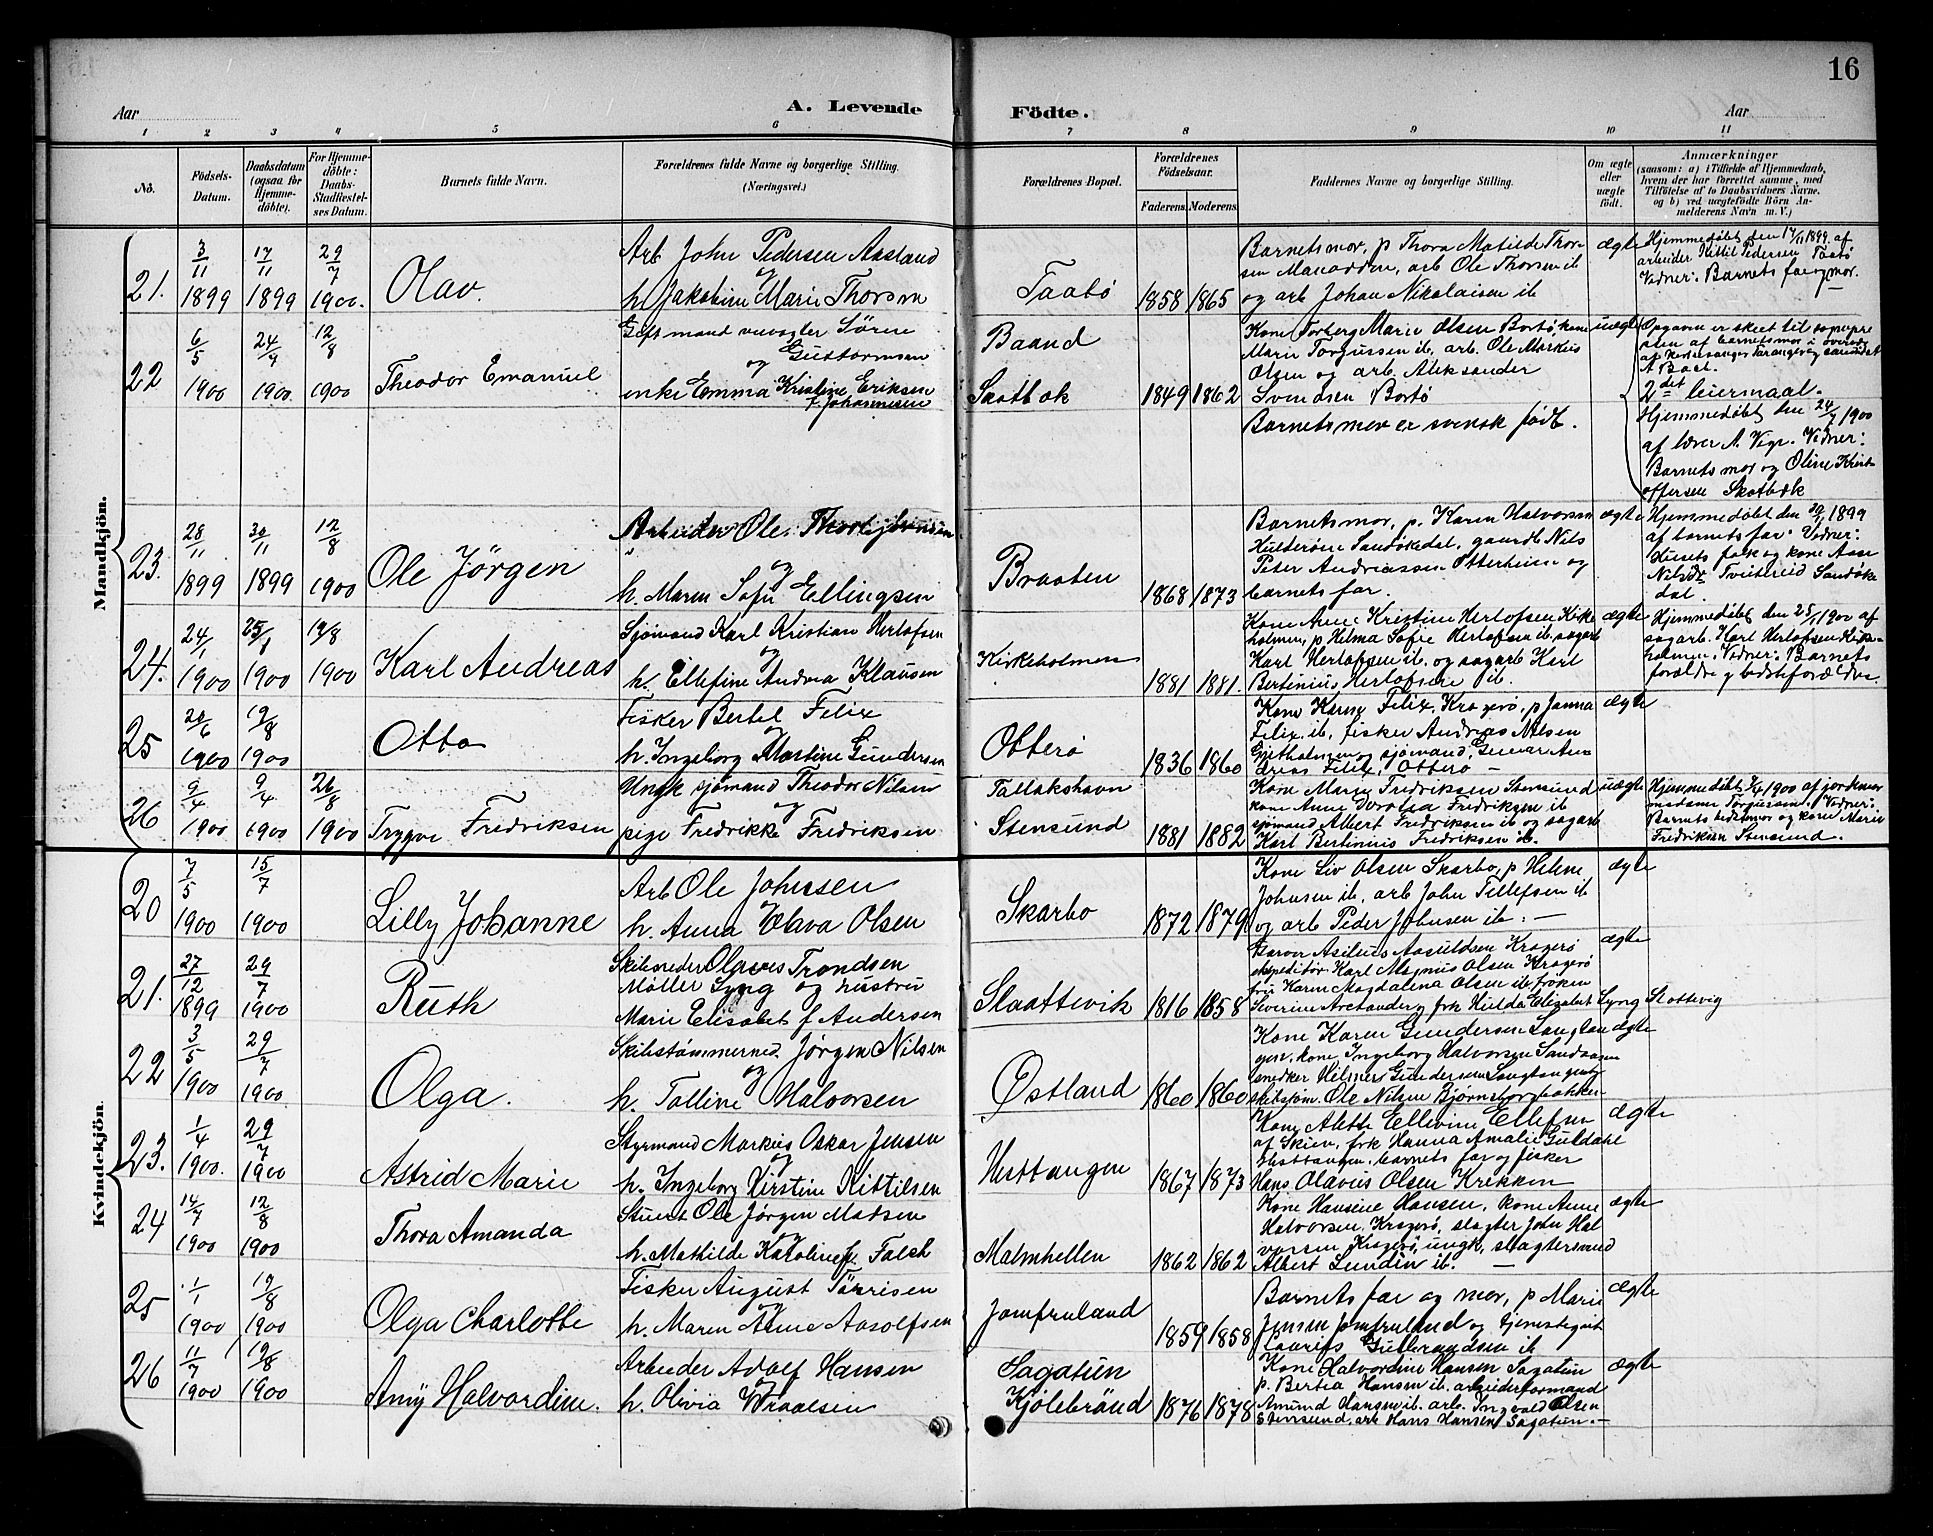 16
Aar
A. Levende Födte.
Aar
1 2 3 4 5 6 7 8 9 10 11
No.
Födsels-
Datum.
Daabsdatum
(ogsaa for
Hjemme-
döbte).
For Hjemme-
döbte:
Daabs-
Stadfæstel-
ses Datum.
Barnets fulde Navn.
Forældrenes fulde Navne og borgerlige Stilling.
(Næringsvei.)
Forældrenes Bopæl.
Forældrenes
Födselsaar.
Faderens. Moderens.
Faddernes Navne og borgerlige Stilling.
Om ægte
eller
uægte
födt.
Anmærkninger
(saasom: a) i Tilfælde af Hjemmedaab,
hvem der har forrettet samme, med
Tilföielse af to Daabsvidners Navne,
og b) ved uægtefödte Börn An-
melderens Navn m. V.)
Mandkjön.
21. 3/11 1899 17/11 1899 29/7 1900.
Olav.
Arb John Pedersen Aasland
og
h. Jakobine Marie Thorsen
Taatö
1858 1865
Barnets mor, p Thora Matilde Thor
sen, arb Ole Thorsen ib
og arb Johan Nikolaisen ib
ægte
Hjemmedöbt den 17/11 1899 af
arbeider Kittil Pedersen Taatö
Vidner: Barnets far og mor.
22 6/5 1900 24/7 1900. 12/8 1900
Theodor Emanuel
Gift mand Sören
og Guttormsen
enke Emma Kristine Eriksen
f. Johannesen
Baand
Skotbæk
1849 1862
Kone Torberg Marie Olsen Bortö kone
Marie Torgussen ib, arb. Ole Markus
Olsen og arb. Aleksander
Svendsen Bortö
Barnets mor er svensk födt.
uægte
Opgaven er skeet til sogneprę
sten af barnets mor i overvær
af kirkesanger
A Boe.
2det leiermaal.
Hjemmedöbt den 24/7 1900
af lærer A. Vidner:
Barnets mor og Oline Krist
offersen Skotbæk
23. 28/11 1899 30/11 1899 12/8 1900
Ole Jörgen
Arbeider Ole Thorbjörnsen
og
h. Maren Sofie Ellingsen
Braaten
1868 1873
Barnets mor, p. Karen Halvorsen
Sandökedal, gaardb Nils
Peter Andreassen Otterheim og
barnets far.
ægte
Hjemmedöbt den 30/11 1899
af barnets far. Vidner:
Husets folk og kone Aase
Nilsdr Tveitereid Sandöke
dal.
24. 24/1 1900 25/1 1900 12/8 1900
Karl Andreas
Sjömand Karl Kristian Herlofsen
og
h. Ellefine Andrea Klausen
Kirkeholmen
1881 1881.
Kone Anne Kristine Herlofsen Kirke
holmen, p Helma Sofie Herlofsen ib, sagarb
Karl Herlofsen ib. og sagarb Karl
Bertinius Herlofsen ib.
ægte
Hjemmedöbt den 25/1 1900 af
sagarb. Karl Herlofsen Kirke-
holmen. Vidner: Barnets
forældre og bedsteforældre.
25 20/6 1900 12/8 1900
Otto
Fisker Bertel Felix
og
h. Ingeborg Martine Gundersen
Otterö
1836 1860
Kone Karen Felix, Kragerö, p Janna
Felix ib, fisker Andreas Nilsen
Gjetholmen og sjömand Gunvar An
dreas Felix, Otterö —
ægte
26 9/4 1900 9/4 1900 26/8 1900
Trygve Fredriksen
Ungk sjömand Theodor Nilsen
og
pige Fredrikke Fredriksen
Tallakshavn
Stensund
1881 1882
Kone Maren Fredriksen Stensund
kone Anne Dorotea Fredriksen ib
sjömand Albert Fredriksen ib og sagarb
Karl Bertinius Fredriksen ib.
uægte
Hjemmedöbt 9/4 1900 af jordemor
madame Torgussen. Vidner:
Barnets bedstemor og kone Maren
Fredriksen Stensund.
Kvindekjön.
20 7/5 1900 15/7 1900
Lilly Johanne
Arb Ole Johnsen
h. Anna Elava Olsen
Skarbo
1872 1879
Kone Liv Olsen Skarbo, p Helene
Johnsen ib, arb John Tellefsen ib
og arb Peder Johnsen ib. —
ægte
21. 27/12 1899 29/7 1900
Ruth
Skibsreder Olaves Trondsen
Möller Lyng og hustru
Marie Elisabet f Andersen
Slaattevik
1816 1858
Garver Asilius Aanuldsen Kragerö
ekspeditör Karl Magnus Olsen Kragerö
fru Karen Magdalena Olsen ib, fröken
Severine og frk Hulda Elisabet Lyng Slottevig
ægte
22 3/5 1900 29/7 1900
Olga.
Skibstömmermd. Jörgen Nilsen
og
h. Talline Halvorsen
Östland
1860 1860
Kone Karen Gundersen Langtan
gen, kone Ingeborg Halvorsen Sandaasen
snedker Hilmer Gundersen Langtangen og
skibstöm. Ole Nilsen Björnsborgbakken
ægte
23. 1/4 1900. 29/7 1900
Astrid Marie
Styrmand Markus Oskar Jensen
og
h. Ingeborg Kirstine Kittilsen
Hesttangen
1867 1873
Kone Alette Ellevine Ellefsen
af Skien, frk Hanna Amalie Guldahl
Hesttangen, barnets far og fisker
Hans Olavus Olsen Krikken
ægte
24 14/7 1900 12/8 1900
Thora Amanda
Stuert Ole Jörgen Madsen
og
h. Mathilde Karoline f. Falch
Malmhellen
1862 1862
Kone Hansine Hansen, kone Anne
Halvorsen, Kragerö, slagter John Hal
vorsen Kragerö, ungk, slagtersvend
Albert Lundin ib. —
ægte
25 1/1 1900 12/8 1900
Olga Charlotte
Fisker August Törrisen
og
h. Maren Anne Aasolfsen
Jomfruland
1859 1858
Barnets far og mor, p Marie
Jensen Jomfruland og tjenestegut
Laurits Gulbrandsen ib
ægte
26 11/7 1900 12/8 1900
Amy Halvordine.
Arbeider Adolf Hansen
og
h. Olivia Wraalsen
Sagatun
Kjölebrönd
1876 1878
Kone Halvordine Hansen Sagatun
p. Bertea Hansen ib. arbeiderformand
Amund Hansen ib. arb. Ingvald Olsen
Stensund, arb Hans Hansen Sagatun. —
ægte